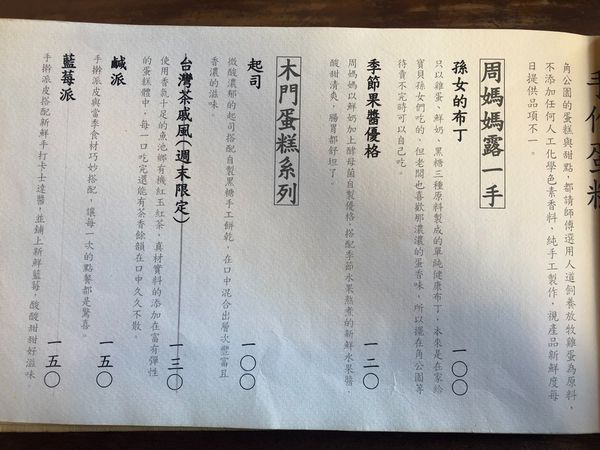 手作蛋糕
角公園的蛋糕與甜點，都請師傅選用人道飼養放牧雞蛋為原料，
不添加任何人工化學色素香料，純手工製作，視產品新鮮度每
日提供品項不一。
周媽媽露一手
孫女的布丁 一〇〇
只以雞蛋、鮮奶、黑糖三種原料製成的單純健康布丁，本來是在家給
寶貝孫女們吃的，但老闆也喜歡那濃濃的蛋香味，所以擺在角公園等
待賣不完時可以自己吃。
季節果醬優格 一二〇
周媽媽以鮮奶加上酵母菌自製優格，搭配季節水果熬煮的新鮮水果醬，
酸甜清爽，腸胃都舒坦了。
木門蛋糕系列
起司 一〇〇
微酸濃郁的起司搭配自製黑糖手工餅乾，在口中混合出層次豐富且
香濃的滋味。
台灣茶戚風(週末限定) 一三〇
使用香氣十足的魚池鄉有機紅玉紅茶，真材實料的添加在富有彈性
的蛋糕體中，每一口吃完還能有茶香餘韻在口中久久不散。
鹹派 一五〇
手擀派皮與當季食材巧妙搭配，讓每一次的點餐都是驚喜。
藍莓派 一五〇
手擀派皮搭配新鮮手打卡士達醬，並鋪上新鮮藍莓，酸酸甜甜好滋味